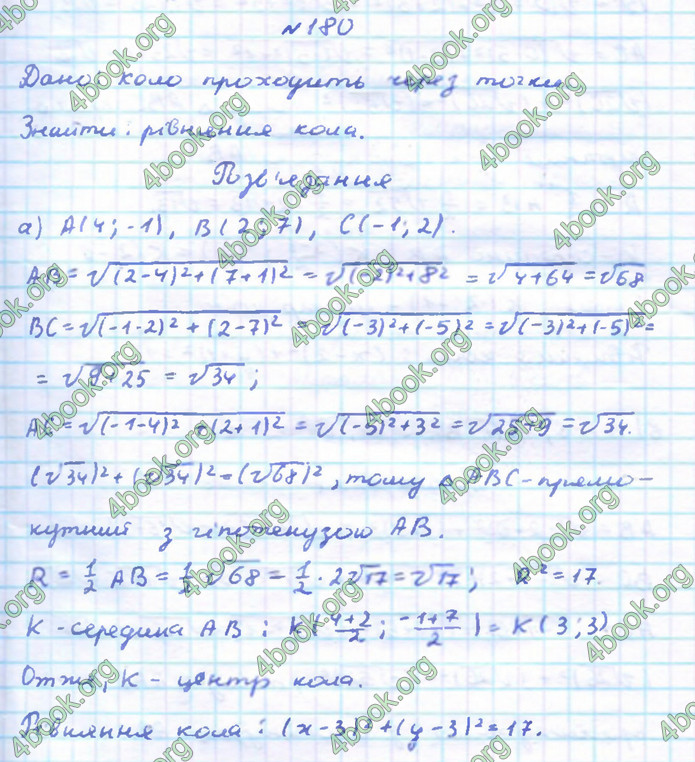 №180
Дано: коло проходить через точки.
Знайти: рівняння кола.
Розв'язання
а) A(4; -1), B(2; 7), C(-1; 2).
AB = √((2-4)²+(7+1)²) = √((-2)²+8²) = √(4+64) = √68
BC = √((-1-2)²+(2-7)²) = √((-3)²+(-5)²) = √((-3)²+(-5)²) =
= √(9+25) = √34;
AC = √((-1-4)²+(2+1)²) = √((-5)²+3²) = √(25+9) = √34.
(√34)²+(√34)²=(√68)², тому △ ABC - прямо-
кутний з гіпотенузою AB.
R = 1/2 AB = 1/2 √68 = 1/2 · 2√17 = √17; R² = 17.
K - середина AB: K((4+2)/2; (-1+7)/2) = K(3; 3)
Отже, K - центр кола.
Рівняння кола: (x-3)²+(y-3)²=17.
4book.org